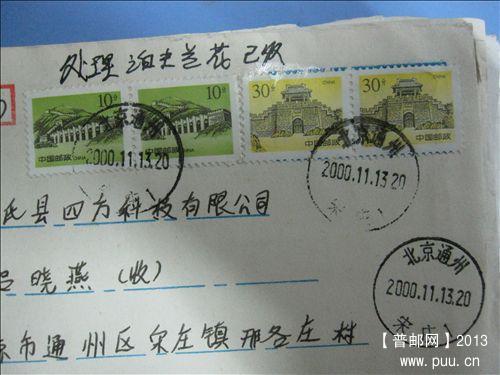 处理 泊夫兰花 已收
10分 10分 30分 30分
CHINA CHINA
中国邮政 中国邮政 中国邮政 中国邮政
北京通州
2000.11.13.20
北京通州
2000.11.13.20
宋庄1
氏县四方科技有限公司
吕晓燕(收)
北京通州
2000.11.13.20
宋庄1
京市通州区宋庄镇邢各庄村
【普邮网】2013
www.puu.cn